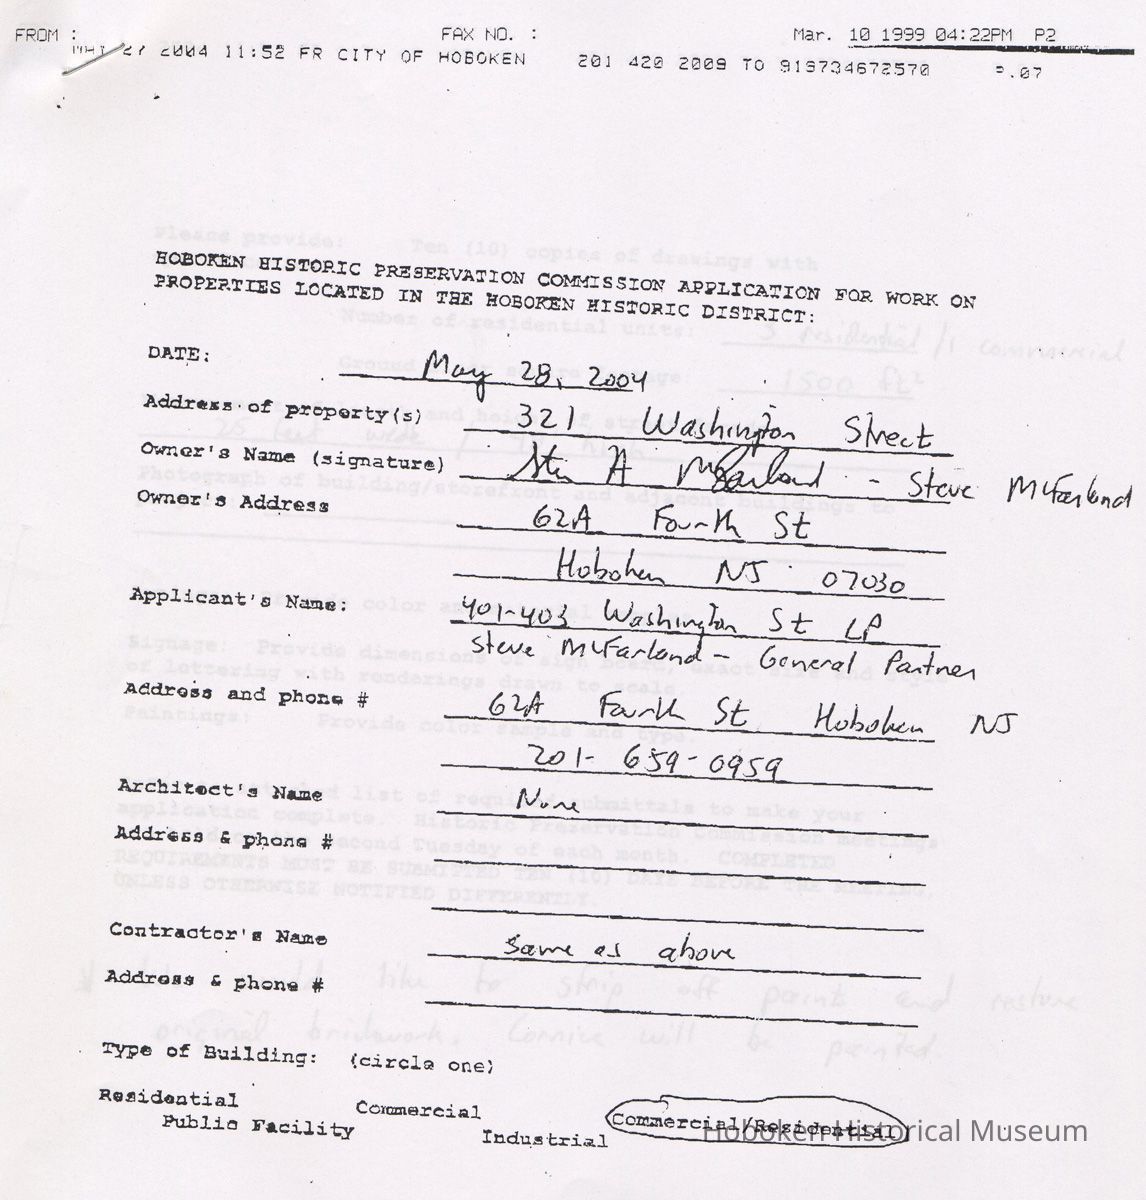 FROM : FAX NO. : Mar. 10 1999 04:22PM P2
27 2004 11:52 FR CITY OF HOBOKEN 201 420 2009 TO 919734672570 P.07
Please provide: Ten (10) copies of drawings with
HOBOKEN HISTORIC PRESERVATION COMMISSION APPLICATION FOR WORK ON
PROPERTIES LOCATED IN THE HOBOKEN HISTORIC DISTRICT:
Number of residential units: 3 residential / 1 commercial
DATE: May 28, 2004
1500 ft²
Address of property(s) 321 Washington Street
Owner's Name (signature) Steve A McFarland - Steve McFarland
Photograph of building/storefront and adjacent buildings to
Owner's Address 62A Fourth St
Hoboken NJ 07030
Applicant's Name: 401-403 Washington St LP
Steve McFarland - General Partner
Signage: Provide dimensions of sign board, exact size and style
of lettering with renderings drawn to scale.
Address and phone # 62A Fourth St Hoboken NJ
Paintings: Provide color sample and type.
201- 659-0959
Architect's Name None
list of required submittals to make your
application complete. Historic Preservation Commission meetings
Address & phone #
second Tuesday of each month. COMPLETED
REQUIREMENTS MUST BE SUBMITTED TEN (10) DAYS BEFORE THE MEETING,
UNLESS OTHERWISE NOTIFIED DIFFERENTLY.
Contractor's Name same as above
Address & phone #
like to strip off paint and restore
original brickwork. Cornice will be painted.
Type of Building: (circle one)
Residential Commercial Commercial/Residential
Public Facility Industrial
Hoboken Historical Museum